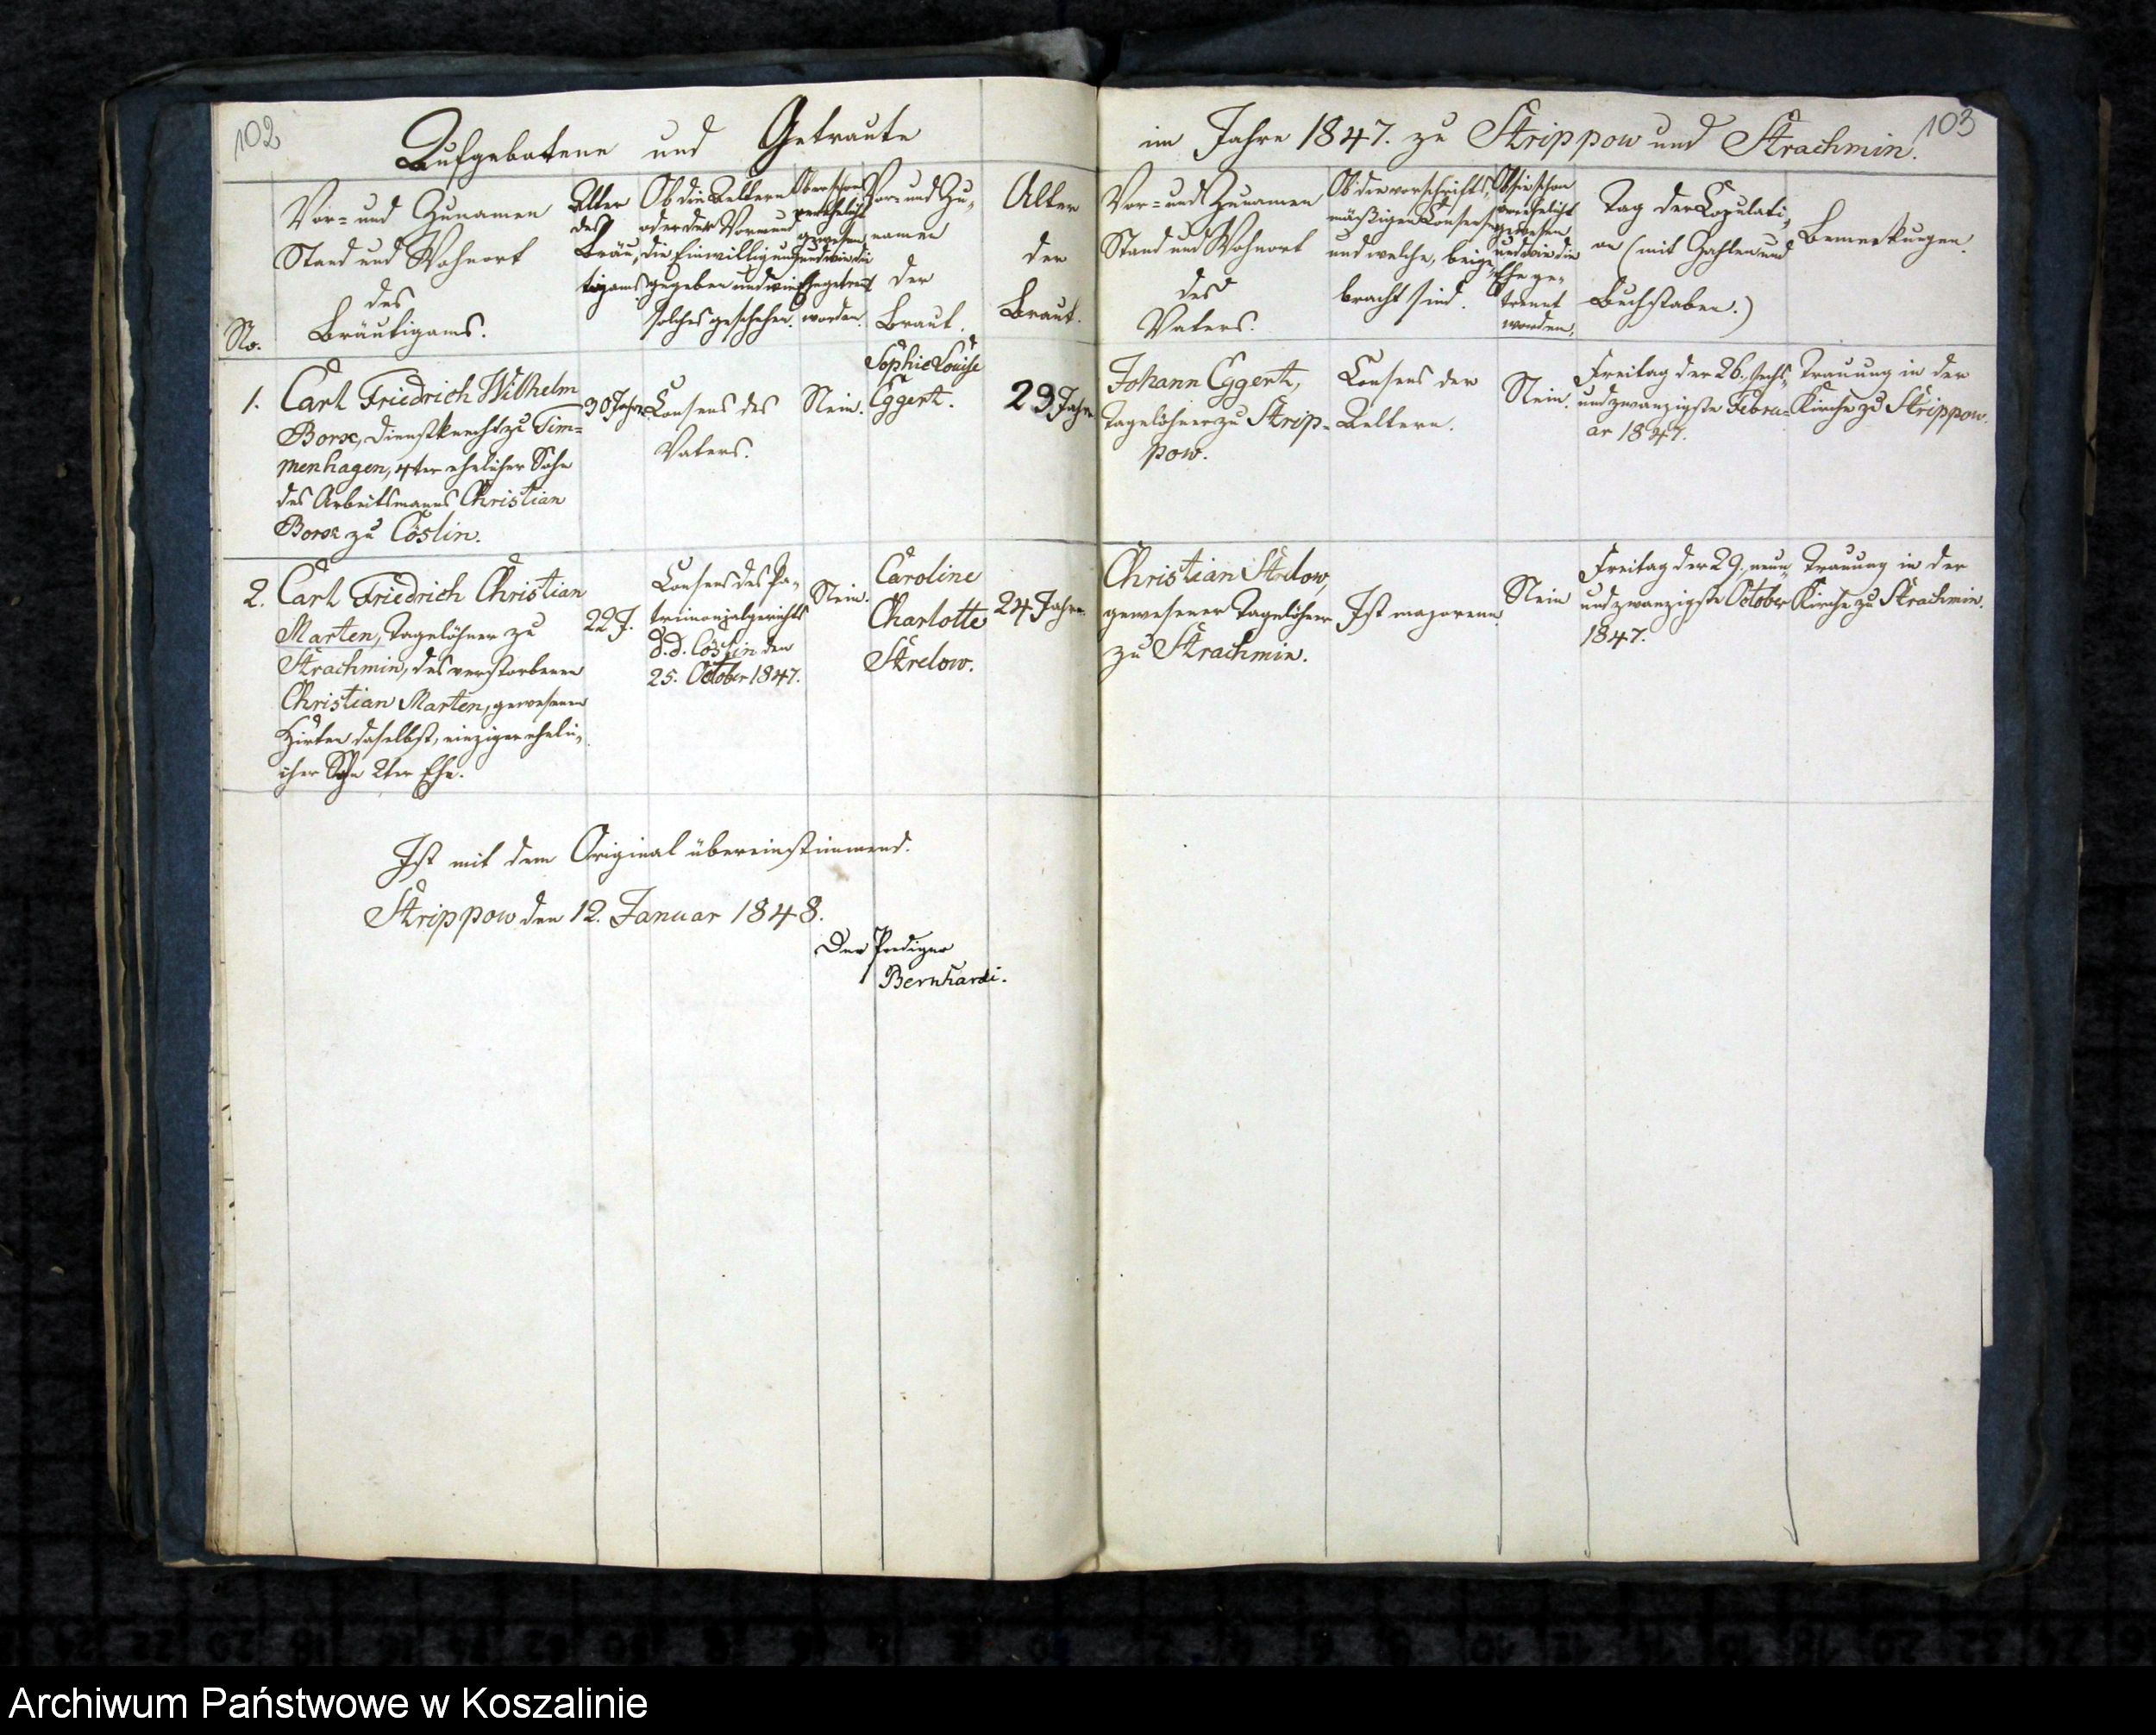 102
Aufgebotene und Getraute
im Jahre 1847. zu Strippow und Strachmin.
103
No.
Vor- und Zunamen
Stand und Wohnort
des
Bräutigams.
Alter
des
Bräu-
tigams
Ob die Aeltern
oder der Vormund
die Einwilligung
gegeben und wie
solches geschehen.
Ob er schon
verehelicht
gewesen
und wie die
Ehe getrennt
worden.
Vor- und Zu-
namen
der
Braut.
Alter
der
Braut.
Vor- und Zunamen
Stand und Wohnort
des
Vaters.
Ob die vorschrifts-
mäßigen Consense
und welche, beige-
bracht sind.
Ob sie schon
verehelicht
gewesen
und wie die
Ehe ge-
trennt
worden.
Tag der Copulati-
on (mit Zahlen und
Buchstaben.)
Bemerkungen.
1.
Carl Friedrich Wilhelm
Borx, Dienstknecht zu Tim-
menhagen, 4ter ehelicher Sohn
des Arbeitsmanns Christian
Borx zu Cöslin.
30 Jahre
Consens des
Vaters.
Nein.
Sophie Louise
Eggert.
29 Jahre
Johann Eggert,
Tagelöhner zu Strip-
pow.
Consens der
Aeltern.
Nein.
Freitag der 26. sechs-
undzwanzigste Febru-
ar 1847.
Trauung in der
Kirche zu Strippow.
2.
Carl Friedrich Christian
Marten, Tagelöhner zu
Strachmin, des verstorbenen
Christian Marten, gewesenen
Hirten daselbst, einziger eheli-
cher Sohn 2ter Ehe.
22 J.
Consens des Pa-
trimonialgerichts
d.d. Cöslin den
25. October 1847.
Nein.
Caroline
Charlotte
Strelow.
24 Jahre.
Christian Strelow,
gewesener Tagelöhner
zu Strachmin.
Ist majorenn.
Nein
Freitag der 29. neun-
undzwanzigste October
1847.
Trauung in der
Kirche zu Strachmin.
Ist mit dem Original übereinstimmend.
Strippow den 12. Januar 1848.
Der Prediger
Bernhardi.
Archiwum Państwowe w Koszalinie